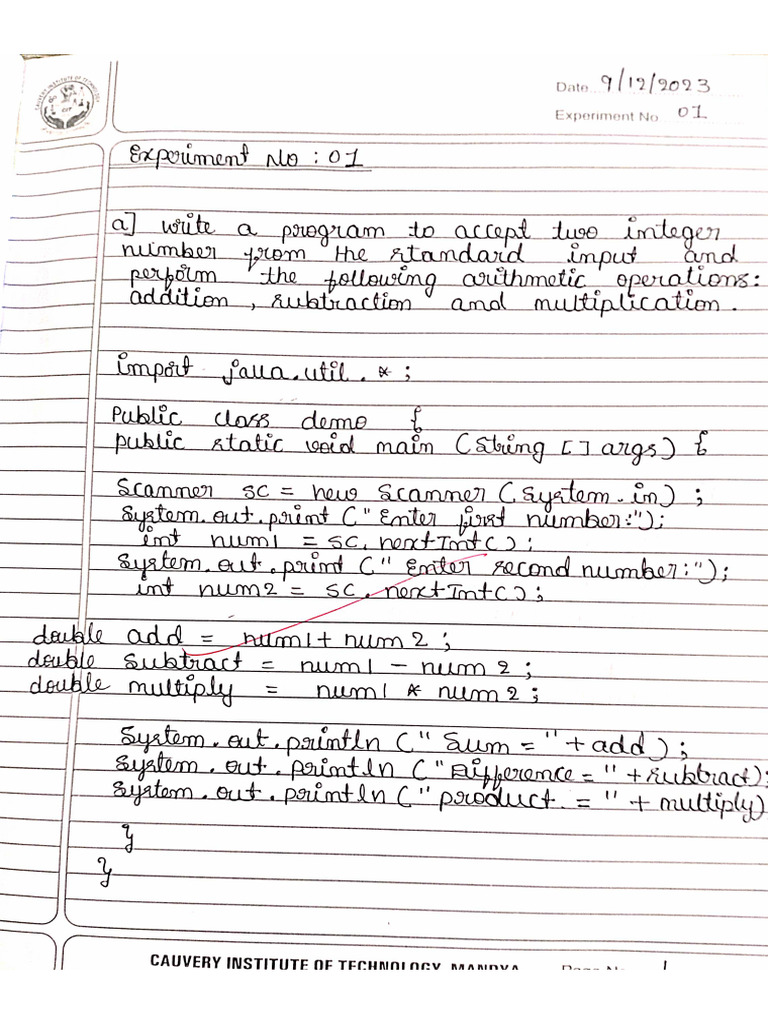 CAUVERY INSTITUTE OF TECHNOLOGY
Date 9/12/2023
Experiment No 01
Experiment No : 01
a] write a program to accept two integer
number from the standard input and
perform the following arithmetic operations:
addition, subtraction and multiplication.
import java.util.*;
Public class demo {
public static void main (String [] args) {
Scanner sc = new Scanner (System.in) ;
System.out.print ("Enter first number:");
int num1 = sc.nextInt();
System.out.print ("Enter second number:");
int num2 = sc.nextInt();
double add = num1 + num2 ;
double subtract = num1 - num2 ;
double multiply = num1 * num2 ;
System.out.println ("Sum = " + add) ;
System.out.println ("Difference = " + subtract);
System.out.println ("product = " + multiply)
}
}
CAUVERY INSTITUTE OF TECHNOLOGY, MANDYA
Page No. 1